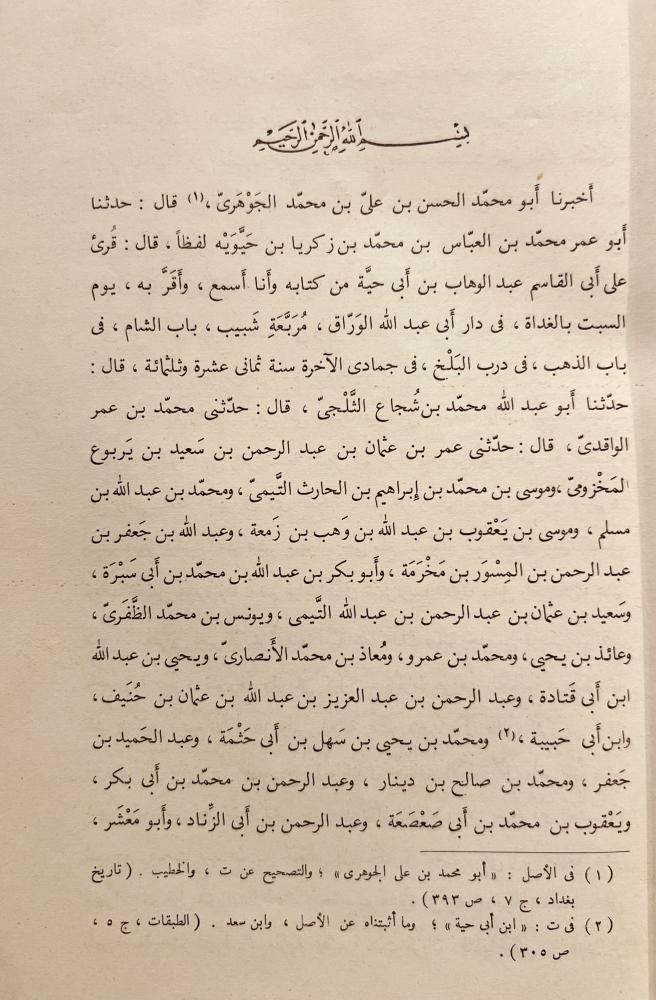 بسم الله الرحمن الرحيم
أَخبرنا أَبو محمّد الحسن بن علىّ بن محمّد الجَوْهَرىّ ،(١) قال : حدثنا
أَبو عمر محمّد بن العبّاس بن محمّد بن زكريا بن حَيَّوَيْه لفظاً ، قال : قُرئ
على أَبى القاسم عبد الوهاب بن أَبى حيَّة من كتابه وأَنا أَسمع ، وأَقَرَّ به ، يوم
السبت بالغداة ، فى دار أَبى عبد الله الوَرّاق ، مُرَبَّعَةِ شَبيب ، باب الشام ، فى
باب الذهب ، فى درب البَلْخ ، فى جمادى الآخرة سنة ثمانى عشرة وثلثمائة ، قال :
حدّثنا أَبو عبد الله محمّد بن شُجاع الثَّلْجىّ ، قال : حدّثنى محمّد بن عمر
الواقدىّ ، قال : حدّثنى عمر بن عثمان بن عبد الرحمن بن سَعيد بن يَربوع
المَخْزومىّ ،وموسى بن محمّد بن إبراهيم بن الحارث التَّيمىّ ، ومحمّد بن عبد الله بن
مسلم ، وموسى بن يَعْقوب بن عبد الله بن وَهب بن زَمعة ، وعبد الله بن جَعفر بن
عبد الرحمن بن المِسْوَر بن مَخْرَمَة ، وأَبو بكر بن عبد الله بن محمّد بن أَبى سَبْرَة ،
وسَعيد بن عثمان بن عبد الرحمن بن عبد الله التَّيمى ، ويونس بن محمّد الظَّفَرىّ ،
وعائذ بن يحيى ، ومحمّد بن عمرو ، ومُعاذ بن محمّد الأَنصارىّ ، ويحيى بن عبد الله
ابن أَبى قَتادة ، وعبد الرحمن بن عبد العزيز بن عبد الله بن عثمان بن حُنَيف ،
وابن أَبى حَبيبة ،(٢) ومحمّد بن يحيى بن سَهل بن أَبى حَثْمَة ، وعبد الحَميد بن
جَعفر ، ومحمّد بن صالح بن دينار ، وعبد الرحمن بن محمّد بن أَبى بكر ،
ويَعْقوب بن محمّد بن أَبى صَعْصَعَة ، وعبد الرحمن بن أَبى الزِّناد ، وأَبو مَعْشَر ،
(١) فى الأصل : «أبو محمد بن على الجوهرى» ؛ والتصحيح عن ت ، والخطيب . (تاريخ
بغداد ، ج ٧ ، ص ٣٩٣) .
(٢) فى ت : «ابن أبى حية» ؛ وما أثبتناه عن الأصل ، وابن سعد . (الطبقات ، ج ٥ ،
ص ٣٠٥) .